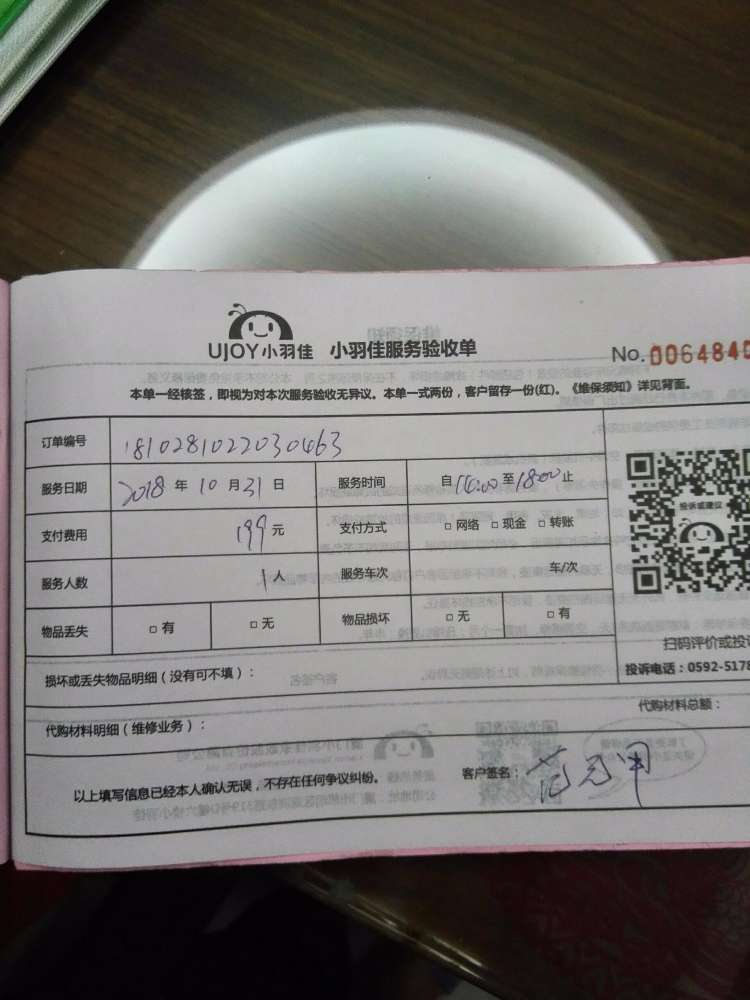 UJOY小羽佳 小羽佳服务验收单
No.0064840
本单一经核签，即视为对本次服务验收无异议。本单一式两份，客户留存一份(红)。《维保须知》详见背面。
订单编号 181028102203​0463
服务日期 2018 年 10 月 31 日 服务时间 自 至18:00止
支付费用 199元 支付方式 □ 网络 □ 现金 □ 转账
投诉或建议
服务人数 1人 服务车次 车/次
物品丢失 □ 有 □ 无 物品损坏 □ 无 □ 有
扫码评价或投诉
损坏或丢失物品明细（没有可不填）：
投诉电话：0592-5178
代购材料明细（维修业务）： 代购材料总额：
以上填写信息已经本人确认无误，不存在任何争议纠纷。 客户签名：